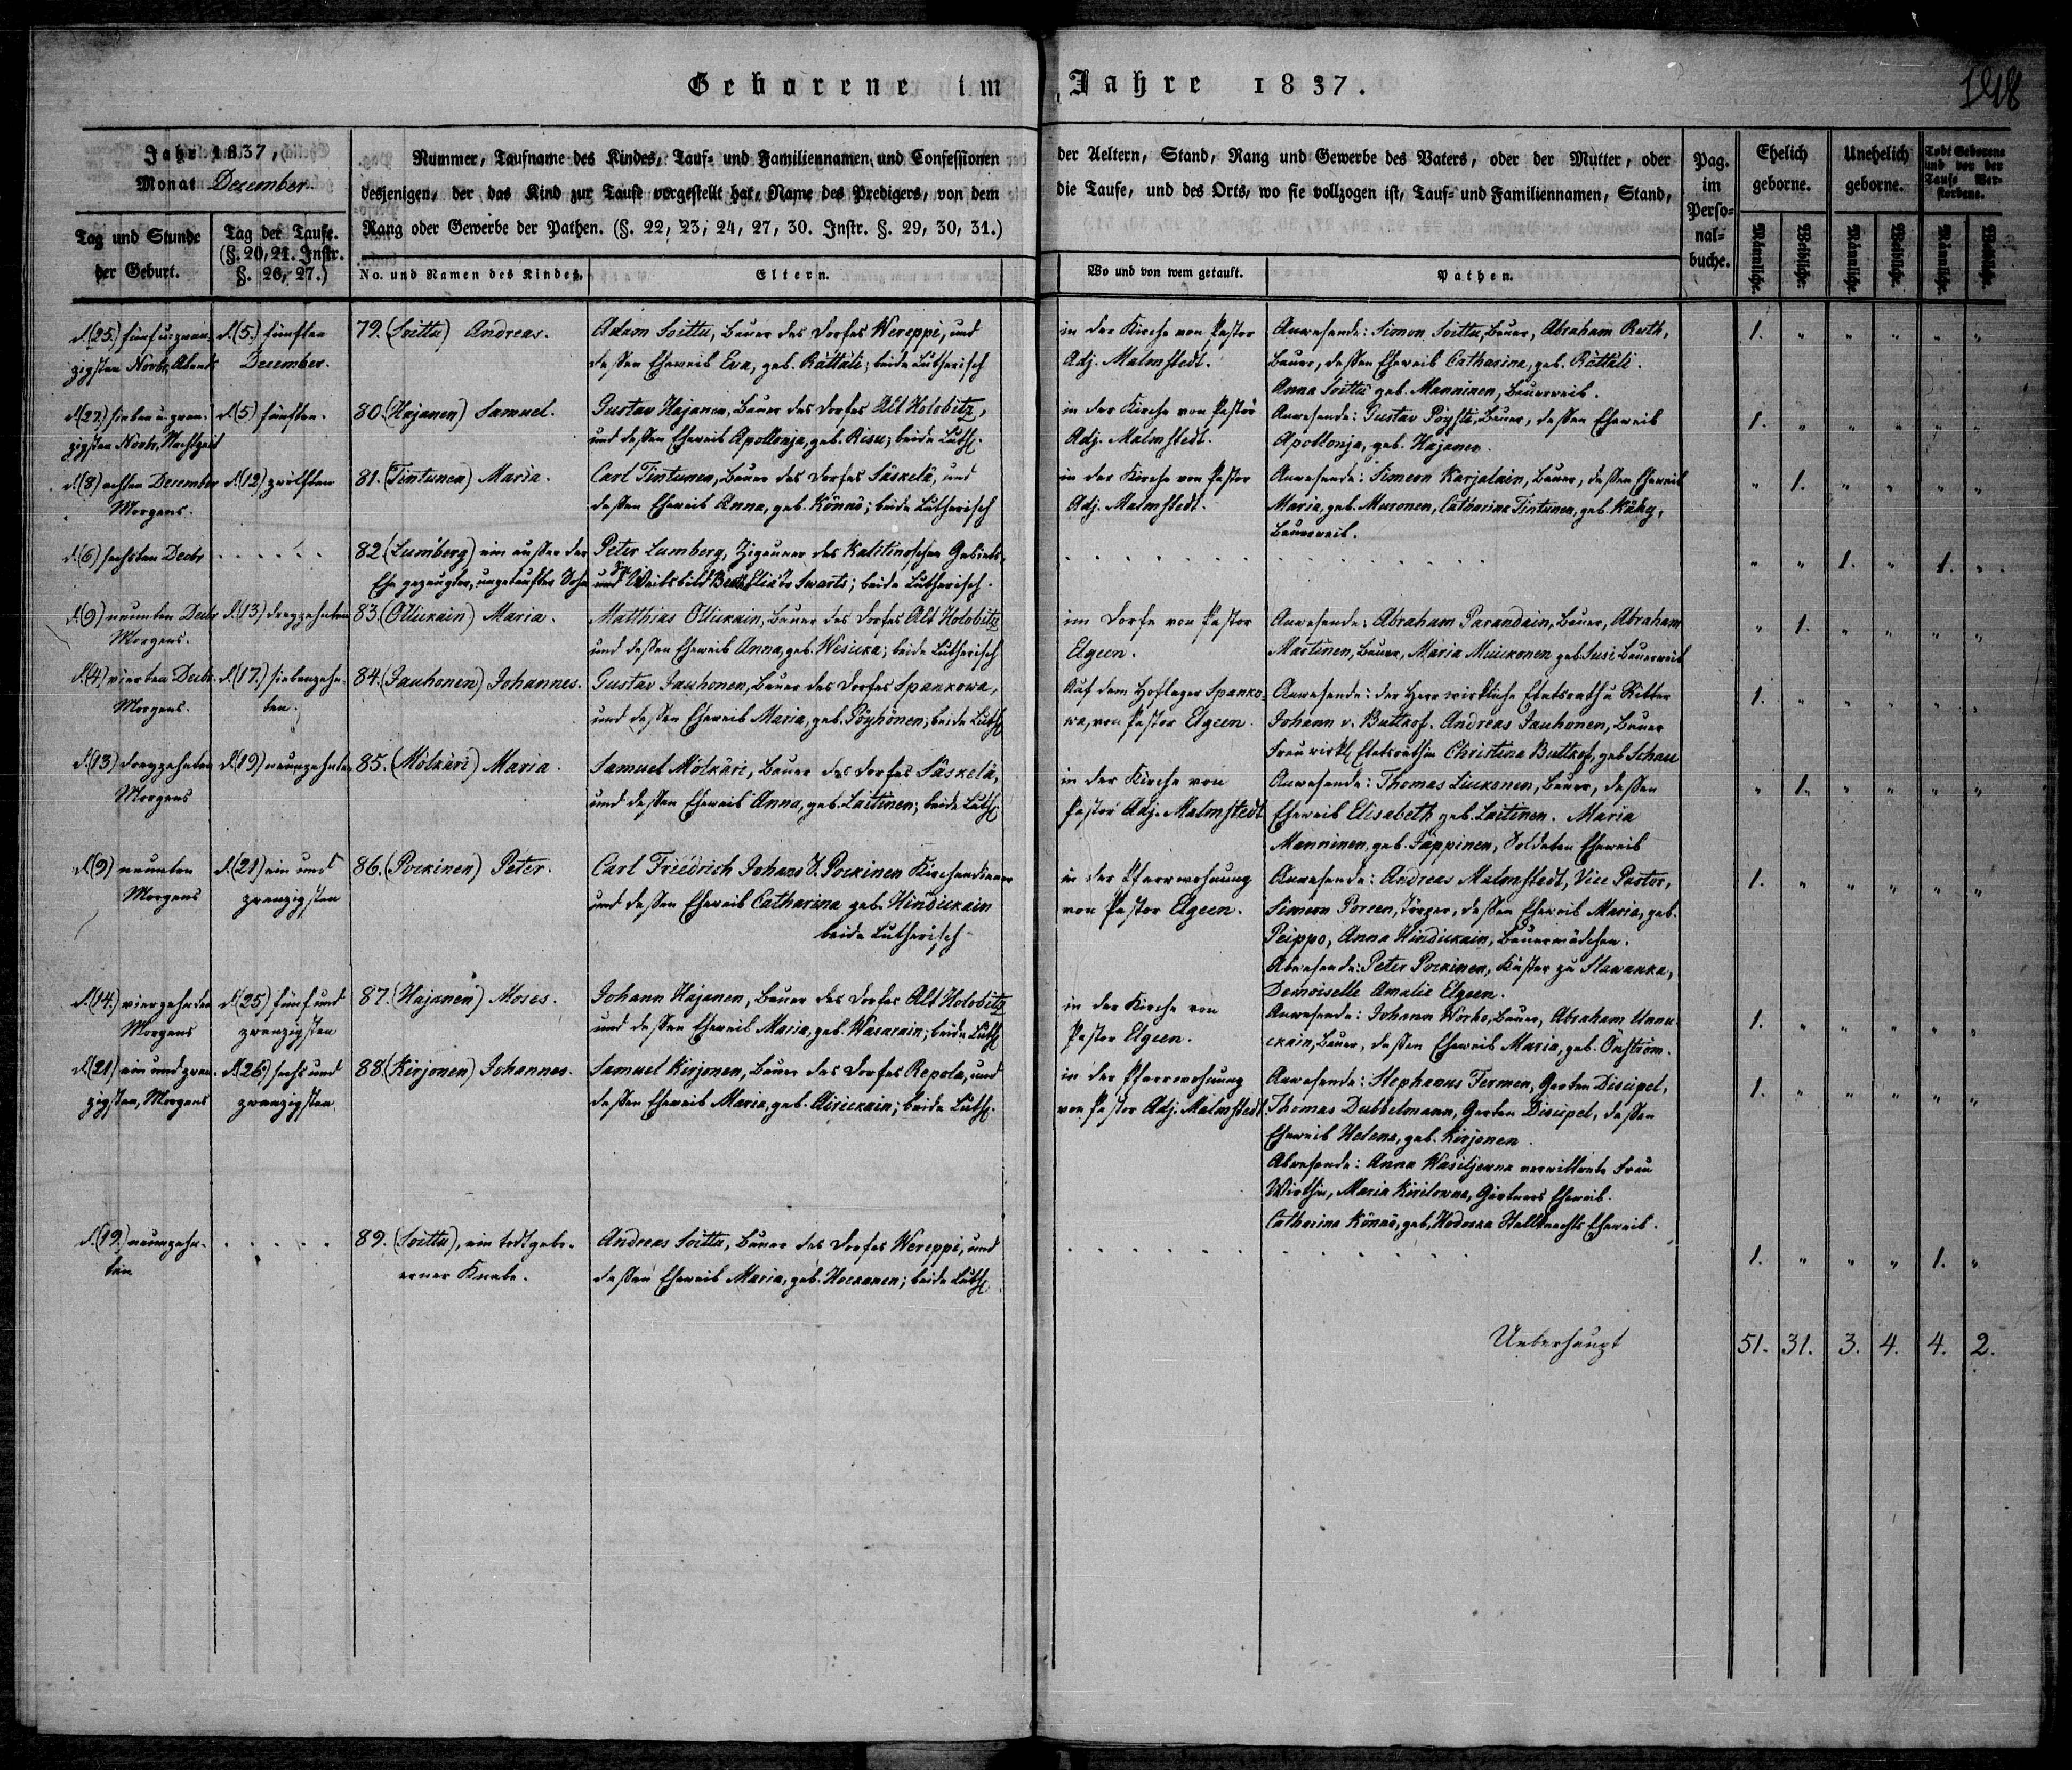 Geborene im Jahre 1837.
148
Jahr 1837,
Monat December.
Tag und Stunde
der Geburt.
Tag der Taufe.
(§. 20, 21. Instr.
§. 26, 27.)
Nummer, Taufname des Kindes, Tauf= und Familiennamen und Confessionen
desjenigen, der das Kind zur Taufe vorgestellt hat, Name des Predigers, von dem
Rang oder Gewerbe der Pathen. (§. 22, 23, 24, 27, 30. Instr. §. 29, 30, 31.)
No. und Namen des Kindes.
Eltern.
der Aeltern, Stand, Rang und Gewerbe des Vaters, oder der Mutter, oder
die Taufe, und des Orts, wo sie vollzogen ist, Tauf= und Familiennamen, Stand,
Wo und von wem getauft.
Pathen.
Pag.
im
Perso=
nal=
buche.
Ehelich
geborne.
Unehelich
geborne.
Todt Geborene
und vor der
Taufe Ver=
storbene.
Männliche.
Weibliche.
Männliche.
Weibliche.
Männliche.
Weibliche.
d. (25.) fünf u. zwan-
zigsten Novbr, Abends
d. (5.) fünften
December.
79. (Soittu) Andreas.
Adam Soittu, Bauer des Dorfes Wereppi, und
dessen Eheweib Eva, geb. Rättäli; beide Lutherisch
in der Kirche von Pastor
Adj. Malmstedt.
Anwesende: Simon Soittu, Bauer, Abraham Ruth,
Bauer, dessen Eheweib Catharina, geb. Rättäli.
Anna Soittu geb. Manninen, Bauerweib.
1. " " " " "
d. (27.) sieben u. zwan-
zigsten Novbr, Nachtzeit
d. (5) fünften.
80. (Hajanen) Samuel.
Gustav Hajanen, Bauer des Dorfes Alt Holobitz,
und dessen Eheweib Apollonja, geb. Risu; beide Luth.
in der Kirche von Pastor
Adj. Malmstedt.
Anwesende: Gustav Pöysti, Bauer, dessen Eheweib
Apollonja, geb. Hajanen.
1. " " " " "
d. (8) achten December
Morgens.
d. (12) zwölften
81. (Tintunen) Maria.
Carl Tintunen, Bauer des Dorfes Säskelä, und
dessen Eheweib Anna, geb. Könnö; beide Lutherisch
in der Kirche von Pastor
Adj. Malmstedt.
Anwesende: Simeon Karjalain, Bauer, dessen Eheweib
Maria, geb. Muronen, Catharina Tintunen, geb. Kähy,
Bauerweib.
" 1. " " " "
d. (6) sechsten Decbr
. . . . . .
82. (Lumberg) ein außer der
Ehe gezeugter, ungetaufter Sohn
Peter Lumberg, Zigeuner des Kalitinoschen Gebiets,
und Weibsbild Swarts; beide Lutherisch.
" " 1. " 1. "
d. (9) neunten Decbr
Morgens.
d. (13) dreyzehnten
83. (Ollickain) Maria.
Matthias Ollickain, Bauer des Dorfes Alt Holobitz
und dessen Eheweib Anna, geb. Wesicka; beide Lutherisch
im Dorfe von Pastor
Elgeen.
Anwesende: Abraham Parandain, Bauer, Abraham
Martinen, Bauer, Maria Muickonen geb. Susi Bauerweib
" 1. " " " "
d. (4) vierten Decbr.
Morgens.
d. (17.) siebenzehn-
ten.
84. (Jauhonen) Johannes.
Gustav Jauhonen, Bauer des Dorfes Spankowa,
und dessen Eheweib Maria, geb. Pöyhönen; beide Luth.
Auf dem Hoflager Spanko-
wa, von Pastor Elgeen.
Anwesende: der Herr wirkliche Etatsrath u Ritter
Johann v. Buttkof. Andreas Jauhonen, Bauer
Frau wirkl. Etatsräthin Christina Buttkof, geb. Schau
1. " " " " "
d. (13) dreyzehnten
Morgens
d. (19) neunzehnten
85. (Mölkäri) Maria.
Samuel Mölkäri, Bauer des Dorfes Säskelä,
und dessen Eheweib Anna, geb. Laitinen; beide Luth.
in der Kirche von
Pastor Adj. Malmstedt
Anwesende: Thomas Liuckonen, Bauer, dessen
Eheweib Elisabeth geb. Laitinen. Maria
Manninen, geb. Jäppinen, Soldaten Eheweib
" 1. " " " "
d. (9) neunten
Morgens
d. (21) ein und
zwanzigsten
86. (Pockinen) Peter.
Carl Friedrich Johans S. Pockinen Kirchendiener
und dessen Eheweib Catharina geb. Hindickain
beide Lutherisch
in der Pfarrwohnung
von Pastor Elgeen.
Anwesende: Andreas Malmstedt, Vice Pastor,
Simeon Poreen, dessen Eheweib Maria, geb.
Peippo, Anna Hindickain, Bauermädchen.
Abwesende: Peter Pockinen, Küster zu Slawanka,
Demoiselle Amalie Elgeen.
1. " " " " "
d. (14.) vierzehnten
Morgens
d. (25) fünf und
zwanzigsten
87. (Hajanen) Moses.
Johann Hajanen, Bauer des Dorfes Alt Holobitz
und dessen Eheweib Maria, geb. Wasarain; beide Luth.
in der Kirche von
Pastor Elgeen.
Anwesende: Johann Worho, Bauer, Abraham Unnu-
ckain, Bauer, dessen Eheweib Maria, geb. Onström.
1. " " " " "
d. (21) ein und zwan-
zigsten, Morgens
d. (26) sechs und
zwanzigsten
88. (Kirjonen) Johannes.
Samuel Kirjonen, Bauer des Dorfes Repola, und
dessen Eheweib Maria, geb. Airickain; beide Luth.
in der Pfarrwohnung
von Pastor Adj. Malmstedt
Anwesende: Stephanus Termen, Garten Discipel,
Thomas Dubbelmann, Garten Discipel, dessen
Eheweib Helena, geb. Kirjonen.
Abwesende: Anna Wasiljewna verwittwete Frau
Wirthin, Maria Kirilowna, Gärtners Eheweib.
Catharina Könnö, geb. Hodocka Stallknechts Eheweib.
1. " " " " "
d. (19.) neunzehn-
ten
. . . . .
89. (Soittu), ein todtgebo-
rner Knabe.
Andreas Soittu, Bauer des Dorfes Wereppi, und
dessen Eheweib Maria, geb. Hockanen; beide Luth.
1. " " " 1. "
Ueberhaupt 51. 31. 3. 4. 4. 2.